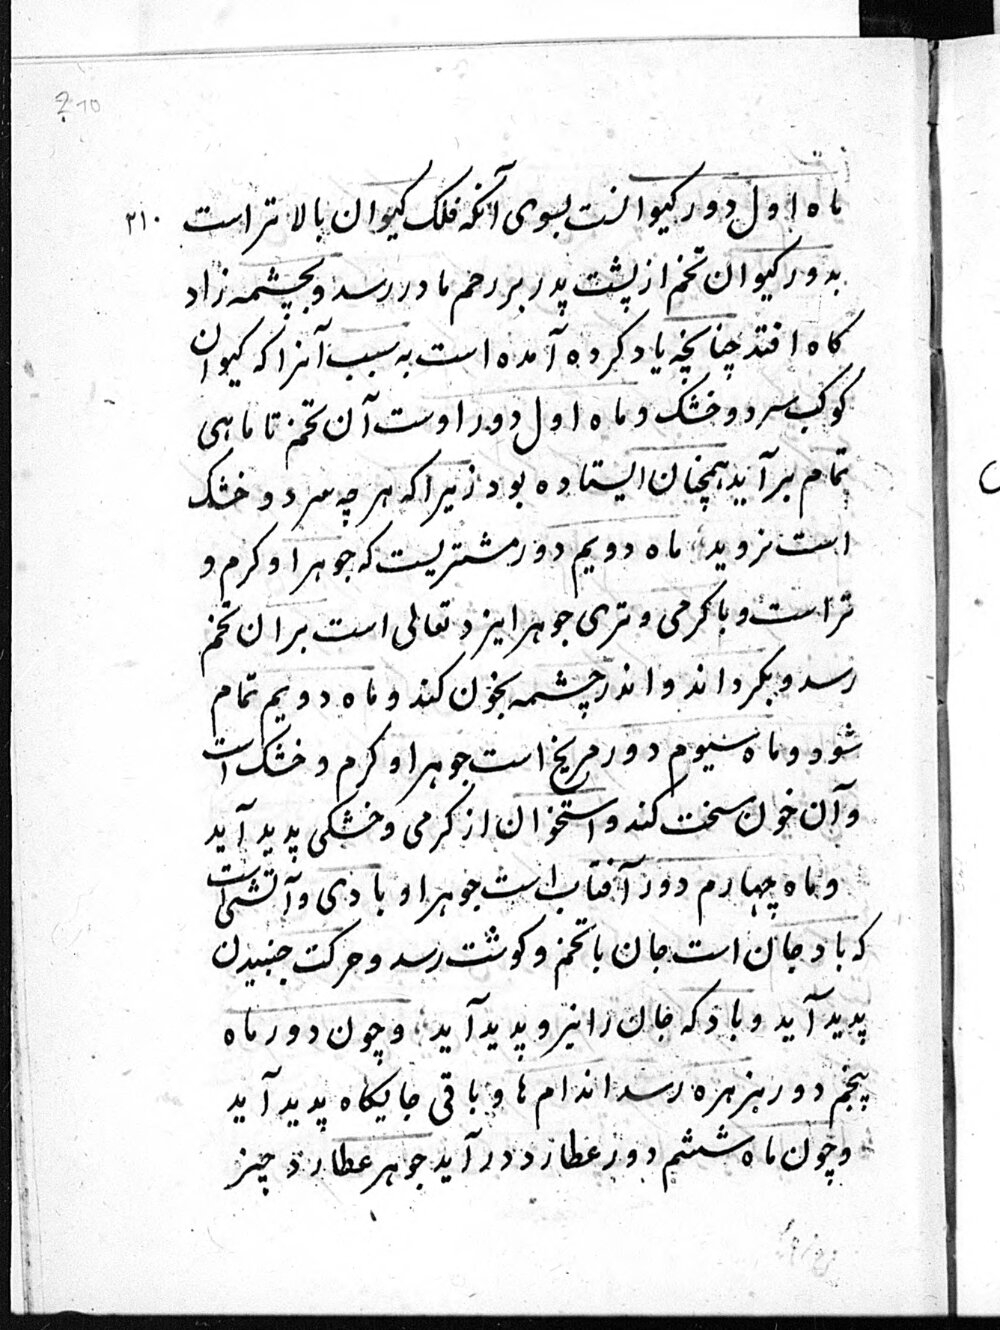 210
۲۱۰
ماه اول دور کیوانست بسوی آنکه فلک کیوان بالا تر است
بدور کیوان تخم از پشت پدر بر رحم مادر رسد و بچشمه زاد
کاه افتد چنانچه یاد کرده آمده است به سبب آنرا که کیوان
کوکب سرد و خشک و ماه اول دور اوست آن تخم تا ماهی
تمام بر آید همچنان ایستاده بود زیرا که هر چه سرد و خشک
است نروید ماه دویم دور مشتریست که جوهر او کرم و
تر است و با کرمی و تری جوهر ایزد تعالی است بر ان تخم
رسد و بکرداند و اندر چشمه بخون کند و ماه دویم تمام
شود و ماه سیوم دور مریخ است جوهر او کرم و خشک است
و آن خون سخت کند و استخوان از کرمی و خشکی پدید آید
و ماه چهارم دور آفتاب است جوهر او بادی و آتشی است
که باد جان است جان با تخم و کوشت رسد و حرکت جنبیدن
پدید آید و باد که جان را نیرو پدید آید و چون دور ماه
پنجم دور بزهره رسد اندام ها و باقی جایکاه پدید آید
و چون ماه ششم دور عطارد در آید جوهر عطارد چیز